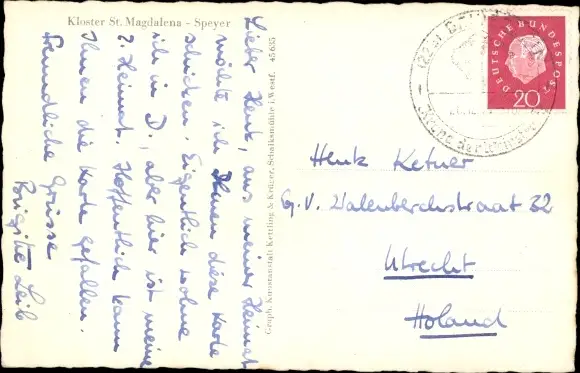 Kloster St. Magdalena - Speyer
Lieber Henk, aus meiner Heimat
möchte ich Ihnen diese Karte
schicken. Eigentlich wohne
ich in D., aber hier ist meine
2. Heimat. Hoffentlich kann
Ihnen die Karte gefallen.
Freundliche Grüsse
Brigitte Leib
Graph. Kunstanstalt Kettling & Krüger, Schalksmühle i. Westf. 45635
DEUTSCHE BUNDESPOST
20
Henk Ketner
G.V. Walenberchstraat 32
Utrecht
Holand